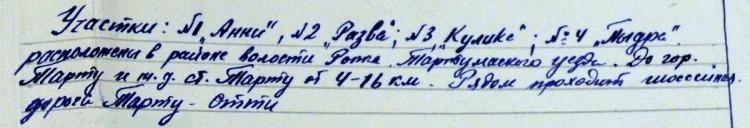 Участки: №1 „Анни", №2 „Разва"; №3 „Кулике"; №4 „Тыдра"
расположены в районе волости „Ропка" Тартумаского уезда. До гор.
Тарту и ж.д. ст. Тарту от 4-16 км. Рядом проходит шоссейная
дорога Тарту - Отти